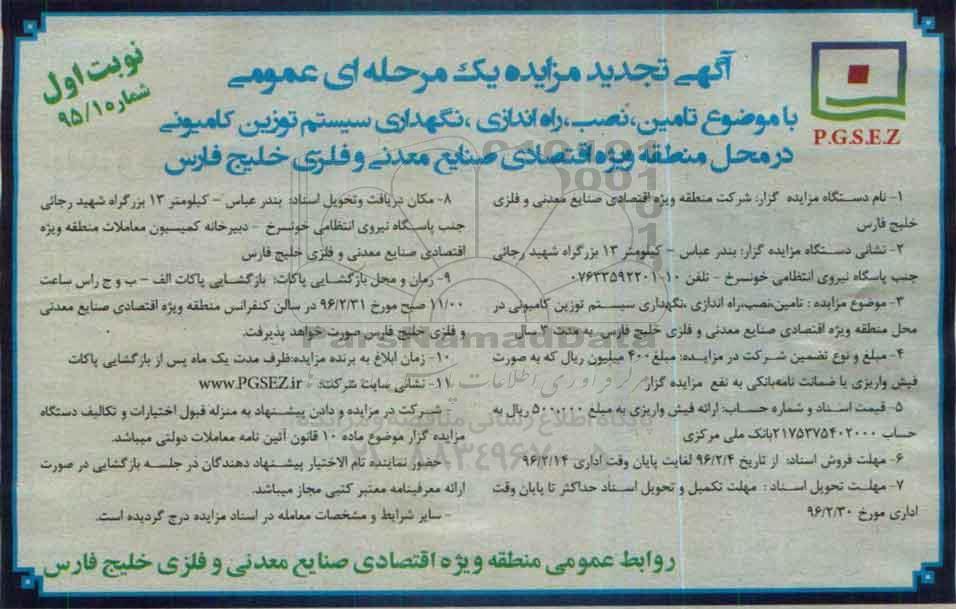 نوبت اول
شماره ۹۵/۱
آگهی تجدید مزایده یک مرحله ای عمومی
با موضوع تامین، نصب، راه اندازی، نگهداری سیستم توزین کامیونی
در محل منطقه ویژه اقتصادی صنایع معدنی و فلزی خلیج فارس
P.G.S.E.Z
۱- نام دستگاه مزایده گزار: شرکت منطقه ویژه اقتصادی صنایع معدنی و فلزی
خلیج فارس
۲- نشانی دستگاه مزایده گزار: بندر عباس - کیلومتر ۱۳ بزرگراه شهید رجائی
جنب پاسگاه نیروی انتظامی خونسرخ - تلفن ۱۰-۰۷۶۳۳۵۹۲۲۰۱
۳- موضوع مزایده : تامین،نصب،راه اندازی ،نگهداری سیستم توزین کامیونی در
محل منطقه ویژه اقتصادی صنایع معدنی و فلزی خلیج فارس. به مدت ۳ سال
۴- مبلغ و نوع تضمین شرکت در مزایده: مبلغ ۴۰۰ میلیون ریال که به صورت
فیش واریزی یا ضمانت نامه‌بانکی به نفع مزایده گزار
۵- قیمت اسناد و شماره حساب: ارائه فیش واریزی به مبلغ ۵۰۰،۰۰۰ ریال به
حساب ۲۱۷۵۳۷۵۴۰۲۰۰۰ بانک ملی مرکزی
۶- مهلت فروش اسناد: از تاریخ ۹۶/۲/۴ لغایت پایان وقت اداری ۹۶/۲/۱۴
۷- مهلت تحویل اسناد : مهلت تکمیل و تحویل اسناد حداکثر تا پایان وقت
اداری مورخ ۹۶/۲/۳۰
۸- مکان دریافت وتحویل اسناد: بندر عباس - کیلومتر ۱۳ بزرگراه شهید رجائی
جنب پاسگاه نیروی انتظامی خونسرخ - دبیرخانه کمیسیون معاملات منطقه ویژه
اقتصادی صنایع معدنی و فلزی خلیج فارس
۹- زمان و محل بازگشایی پاکات: بازگشایی پاکات الف - ب و ج راس ساعت
۱۱/۰۰ صبح مورخ ۹۶/۲/۳۱ در سالن کنفرانس منطقه ویژه اقتصادی صنایع معدنی
و فلزی خلیج فارس صورت خواهد پذیرفت.
۱۰- زمان ابلاغ به برنده مزایده:ظرف مدت یک ماه پس از بازگشایی پاکات
۱۱- نشانی سایت شرکت: www.PGSEZ.ir
- شرکت در مزایده و دادن پیشنهاد به منزله قبول اختیارات و تکالیف دستگاه
مزایده گزار موضوع ماده ۱۰ قانون آئین نامه معاملات دولتی میباشد.
- حضور نماینده تام الاختیار پیشنهاد دهندگان در جلسه بازگشایی در صورت
ارائه معرفینامه معتبر کتبی مجاز میباشد.
- سایر شرایط و مشخصات معامله در اسناد مزایده درج گردیده است.
روابط عمومی منطقه ویژه اقتصادی صنایع معدنی و فلزی خلیج فارس
ParsNamadData
پایگاه اطلاع رسانی مناقصه و مزایده